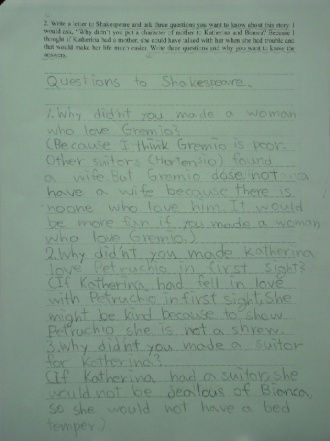 2. Write a letter to Shakespeare and ask three questions you want to know about this story. I
would ask, "Why didn't you put a character of mother to Katherina and Bianca? Because I
thought if Katherina had a mother, she could have advised with her when she had trouble and
that would make her life much easier. Write three questions and why you want to know the
answers.
Questions to Shakespeare.
1. Why didn't you made a woman
who love Gremio?
(Because I think Gremio is poor.
Other suitors (Hortensio) found
a wife. But Gremio dose not
have a wife because there is
noone who love him. It would
be more fun if you made a woman
who love Gremio.)
2. Why did'nt you made Katherina
love Petruchio in first sight?
(If Katherina had fell in love
with Petruchio in first sight, She
might be kind because to show
Petruchio she is not a shrew.
3. why did'nt you made a suitor
for Katherina?
(If Katherina had a suitor, she
would not be jealous of Bianca,
so she would not have a bed
temper.)